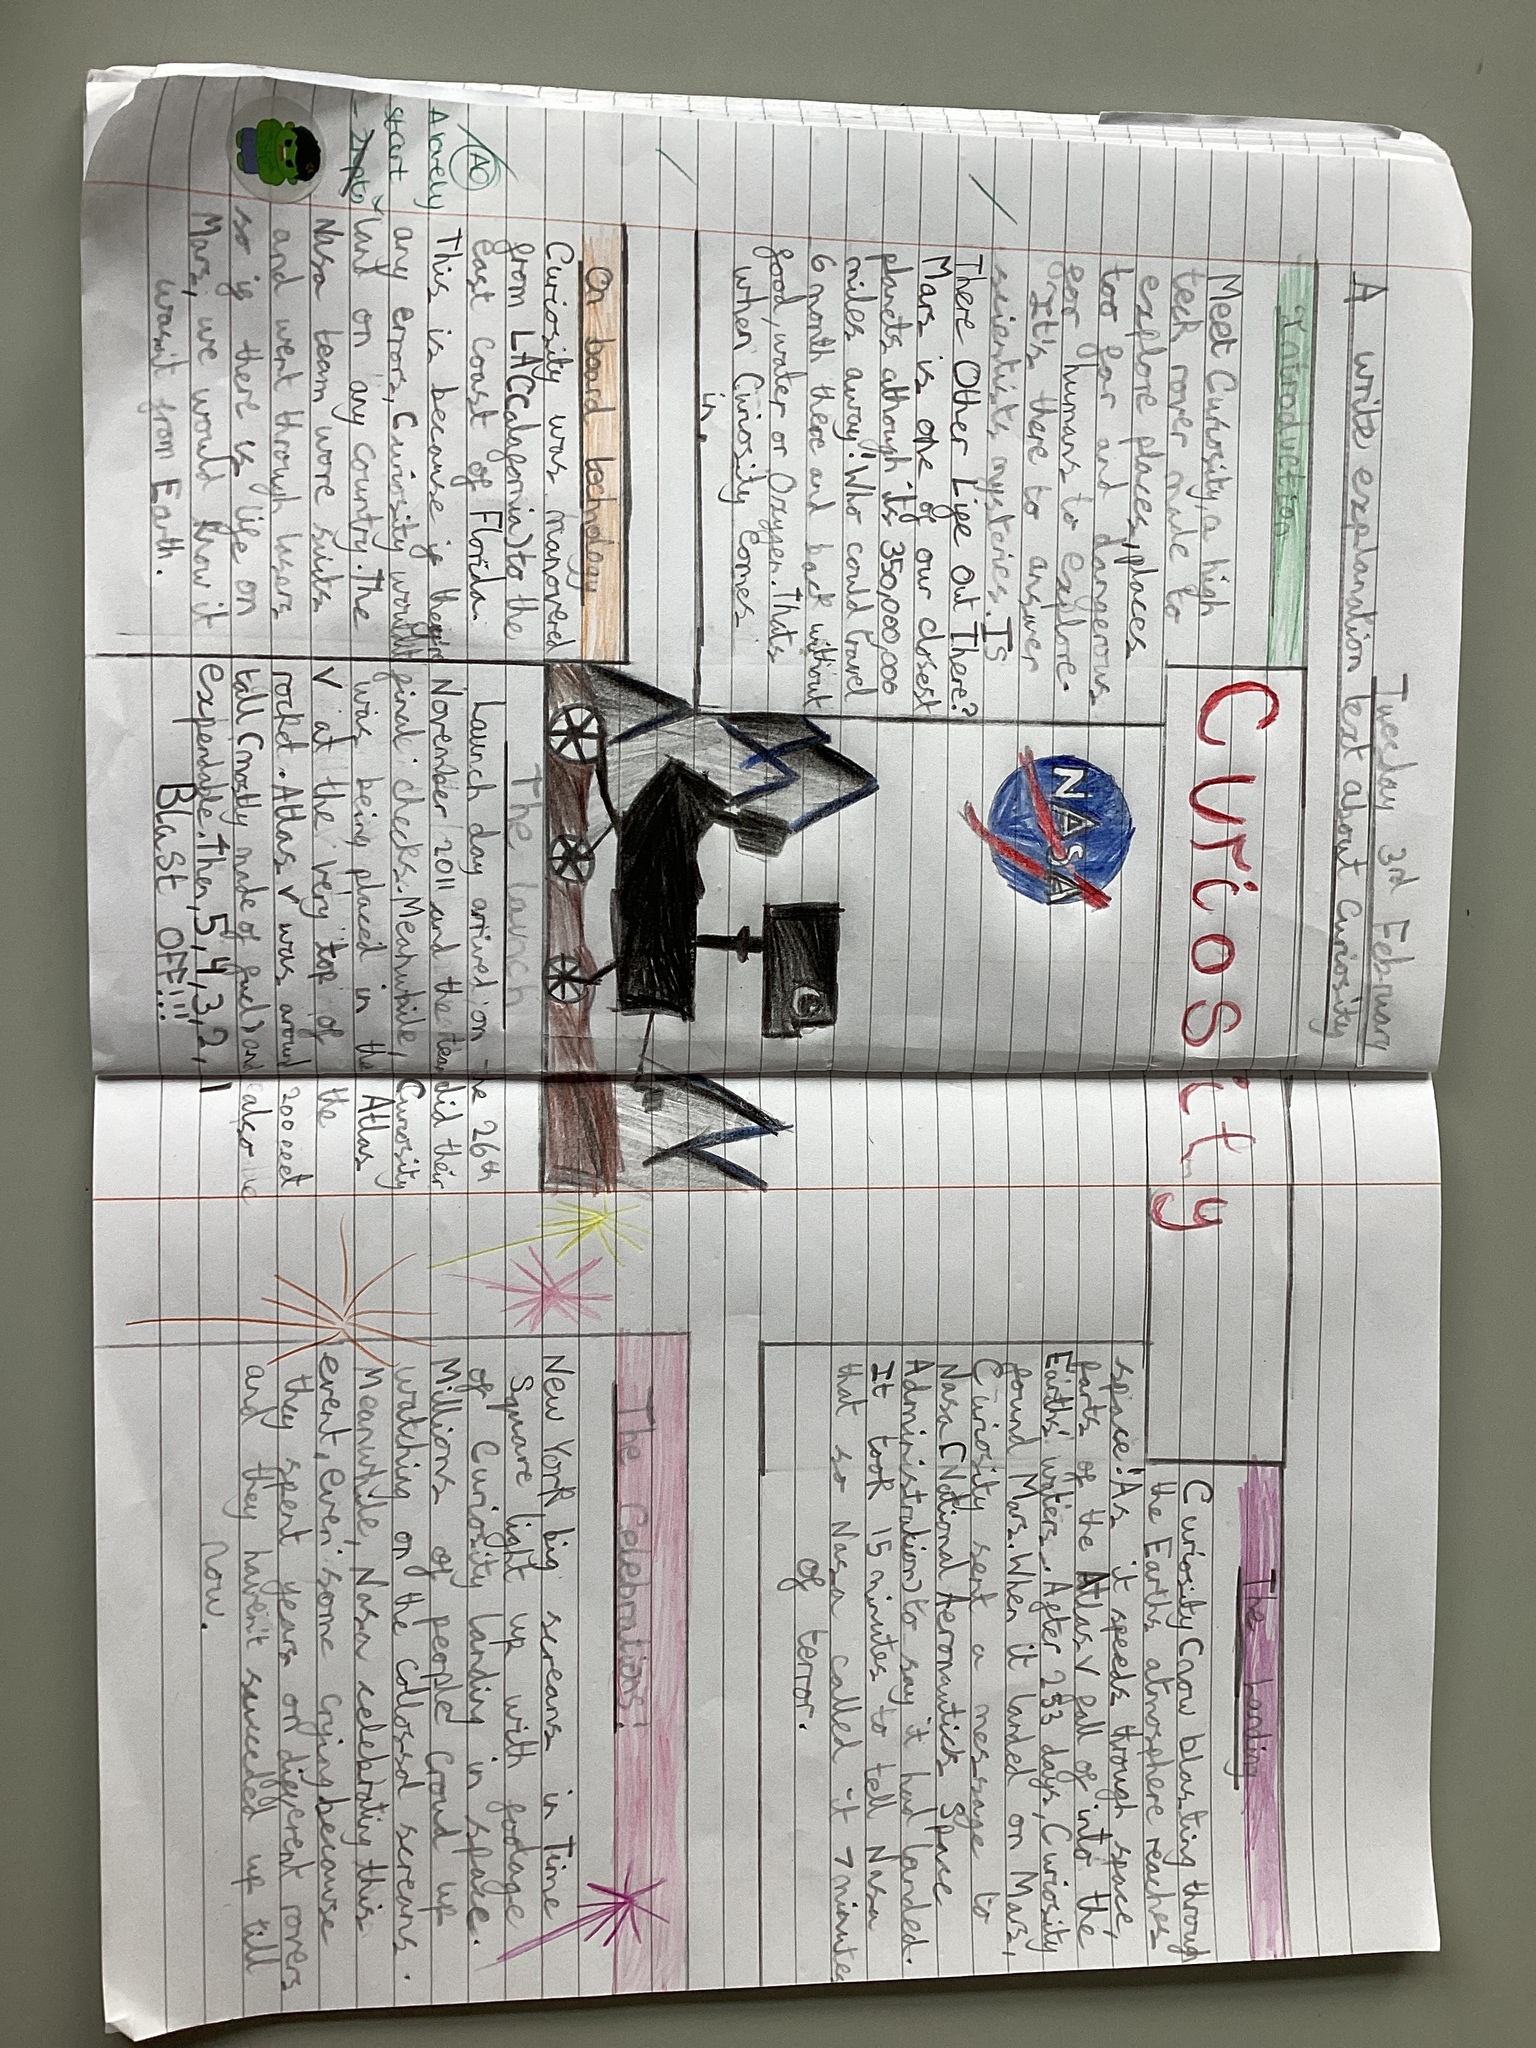 Tuesday 3rd February
A write explanation text about Curiosity
Curiosity
Introduction
Meet Curiosity, a high
tech rover made to
explore places, places
too far and dangerous
for humans to explore.
It's there to answer
scientists mysteries. IS
There Other Life out There?
Mars is one of our closest
planets although its 350,000,000
miles away! Who could travel
6 month there and back without
food, water or Oxygen. Thats
when Curiosity comes
in.
NASA
On board technology
Curiosity was manovered
from LA (Calafornia) to the
east coast of Florida.
This is because if they
any errors, Curiosity would
land on any country. The
Nasa team wore suits
and went through lasers
so if there is life on
Mars, we would know it
wasn't from Earth.
AO
A lovely
start
The launch
Launch day arrived on the 26th
November 2011 and the team did their
final checks. Meanwhile, Curiosity
was being placed in the Atlas
V at the very top of the
rocket. Atlas V was around 200 feet
tall (mostly made of fuel) and also
expendable. Then, 5, 4, 3, 2, 1
BLaSt OFF!!!
The landing
Curiosity (now blasting through
the Earths atmosphere reaches
space! As it speeds through space,
parts of the Atlas V fall of into the
Earths' waters. After 253 days, Curiosity
found Mars. When it landed on Mars,
Curiosity sent a message to
Nasa (National Aeronauticks Space
Administration) to say it had landed.
It took 15 minutes to tell Nasa
that so Nasa called it 7 minutes
of terror.
The Celebrations!
New York big screans in Time
Square light up with footage
of Curiosity landing in space.
Millions of people Croud up
watching on the collossol screans.
Meanwhile, Nasa celebrating this
event, even some crying because
they spent years on different rovers
and they haven't succeded up till
now.